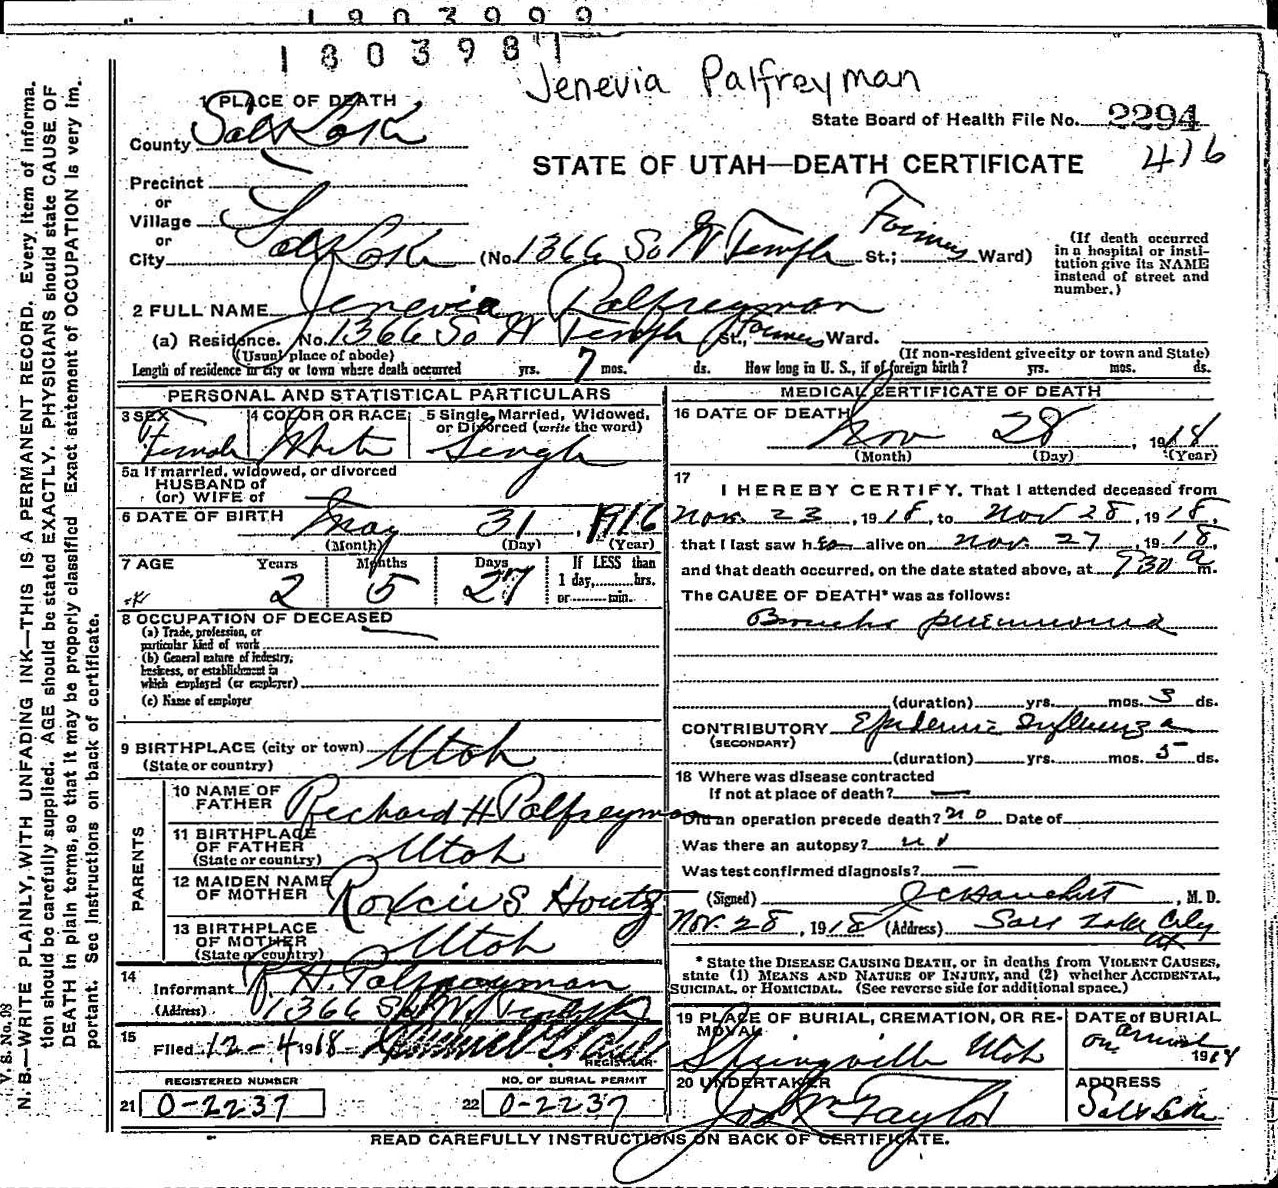 1803999
1803987
Jenevia Palfreyman
1 PLACE OF DEATH
County Salt Lake
State Board of Health File No. 2294
416
STATE OF UTAH—DEATH CERTIFICATE
Precinct
or
Village
or
City Salt Lake (No. 1366 So W Temple St.; Farmers Ward)
(If death occurred in a hospital or institution give its NAME instead of street and number.)
2 FULL NAME Jenevia Palfreyman
(a) Residence. No. 1366 So W Temple St., Farmers Ward.
(Usual place of abode) (If non-resident give city or town and State)
Length of residence in city or town where death occurred yrs. 7 mos. ds. How long in U. S., if of foreign birth? yrs. mos. ds.
PERSONAL AND STATISTICAL PARTICULARS
3 SEX Female
4 COLOR OR RACE White
5 Single, Married, Widowed, or Divorced (write the word) Single
5a If married, widowed, or divorced
HUSBAND of
(or) WIFE of
6 DATE OF BIRTH May 31, 1916
(Month) (Day) (Year)
7 AGE Years 2 Months 5 Days 27
If LESS than
1 day, hrs.
or min.
8 OCCUPATION OF DECEASED
(a) Trade, profession, or
particular kind of work
(b) General nature of industry,
business, or establishment in
which employed (or employer)
(c) Name of employer
9 BIRTHPLACE (city or town) Utah
(State or country)
PARENTS
10 NAME OF
FATHER Richard H Palfreyman
11 BIRTHPLACE
OF FATHER Utah
(State or country)
12 MAIDEN NAME
OF MOTHER S Houtz
13 BIRTHPLACE
OF MOTHER Utah
(State or country)
14
Informant R. H. Palfreyman
(Address) 1366 So W Temple
15
Filed 12-4 1918
REGISTRAR
REGISTERED NUMBER
21 0-2237
NO. OF BURIAL PERMIT
22 0-2237
MEDICAL CERTIFICATE OF DEATH
16 DATE OF DEATH
Nov 28, 1918
(Month) (Day) (Year)
17
I HEREBY CERTIFY, That I attended deceased from
Nov. 23, 1918, to Nov 28, 1918,
that I last saw her alive on Nov. 27, 1918,
and that death occurred, on the date stated above, at 930 a m.
The CAUSE OF DEATH* was as follows:
Broncho pneumonia
(duration) yrs. mos. 3 ds.
CONTRIBUTORY Epidemic Influenza
(SECONDARY)
(duration) yrs. mos. 5 ds.
18 Where was disease contracted
If not at place of death? —
Did an operation precede death? no Date of
Was there an autopsy? no
Was test confirmed diagnosis? —
(Signed) , M. D.
Nov. 28, 1918 (Address) Salt Lake City
Ut
* State the DISEASE CAUSING DEATH, or in deaths from VIOLENT CAUSES,
state (1) MEANS AND NATURE OF INJURY, and (2) whether ACCIDENTAL,
SUICIDAL, or HOMICIDAL. (See reverse side for additional space.)
19 PLACE OF BURIAL, CREMATION, OR RE-
MOVAL
Springville Utah
DATE OF BURIAL
on arrival
191
20 UNDERTAKER
Jos Wm Taylor
ADDRESS
Salt Lake
READ CAREFULLY INSTRUCTIONS ON BACK OF CERTIFICATE.
V. S. No. 98
N. B.—WRITE PLAINLY, WITH UNFADING INK—THIS IS A PERMANENT RECORD. Every item of informa-
tion should be carefully supplied. AGE should be stated EXACTLY. PHYSICIANS should state CAUSE OF
DEATH in plain terms, so that it may be properly classified. Exact statement of OCCUPATION is very im-
portant. See instructions on back of certificate.